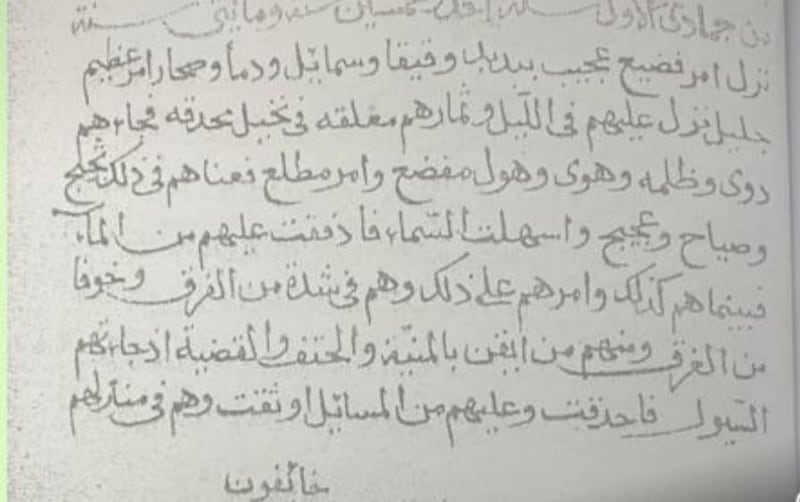 من جمادى الاول سنة خمسين سنة ومائتي سنة
نزل امر فضيع عجيب ببدبد وقيقا وسمائل ودما وصحار امر عظيم
جليل نزل عليهم في الليل وثمارهم مغلقه في نخيل محدقه فجاءهم
دوى وظلمه وهوى وهول مفضع وامر مطلع فعناهم في ذلك عجلج
وصياح وعجيج واسهلت السماء فاذفقت عليهم من المآء
فبينماهم كذلك وامرهم على ذلك وهم في شدة من الفرق وخوفا
من الغرق ومنهم من ايقن بالمنيّة والحتف والقضية اذ جاءتهم
السّيول فاحدقت وعليهم من المسائل اوثقت وهم في منازلهم
خائفون